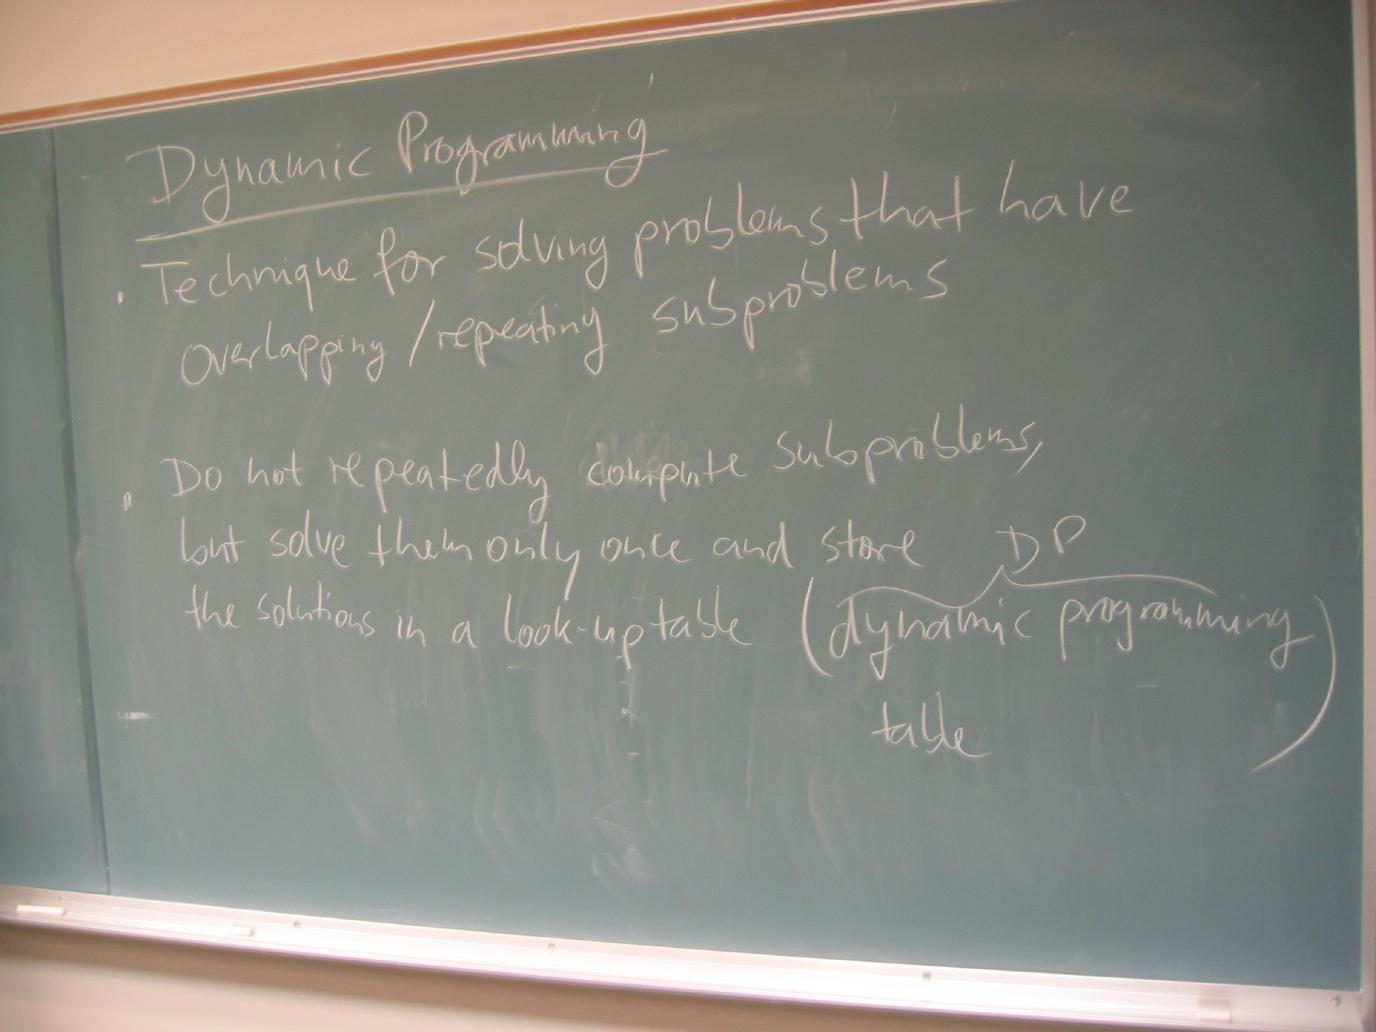 Dynamic Programming
• Technique for solving problems that have
overlapping/repeating subproblems
• Do not repeatedly compute subproblems,
but solve them only once and store
DP
the solutions in a look-up table (dynamic programming
table)